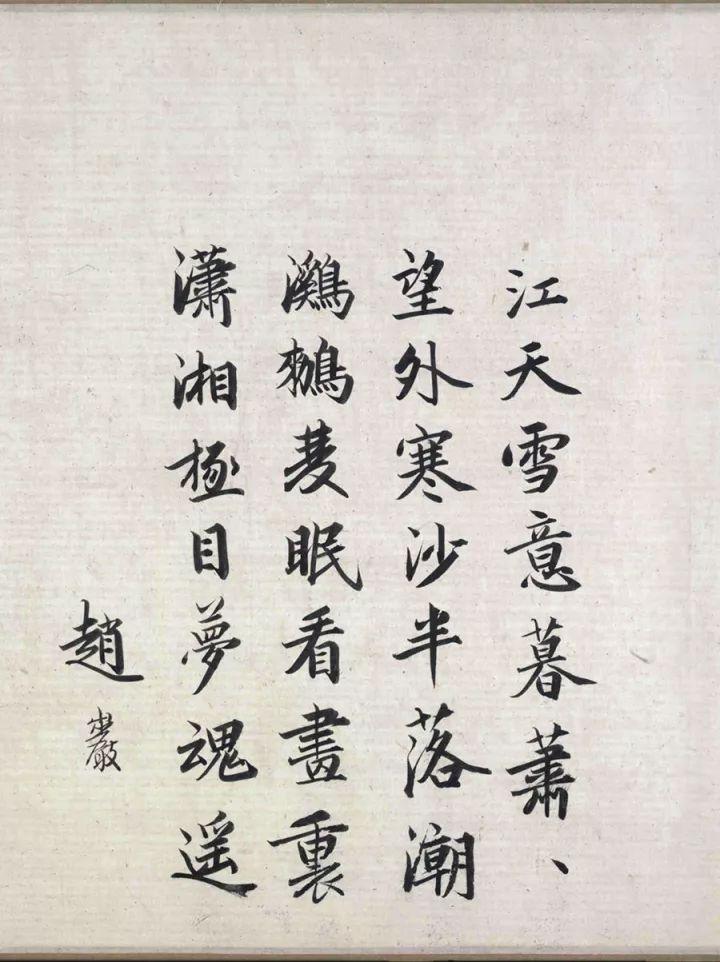 江天雪意暮蕭、
望外寒沙半落潮
鸂鶒菱眠看畫裏
瀟湘極目夢魂遥
趙巖